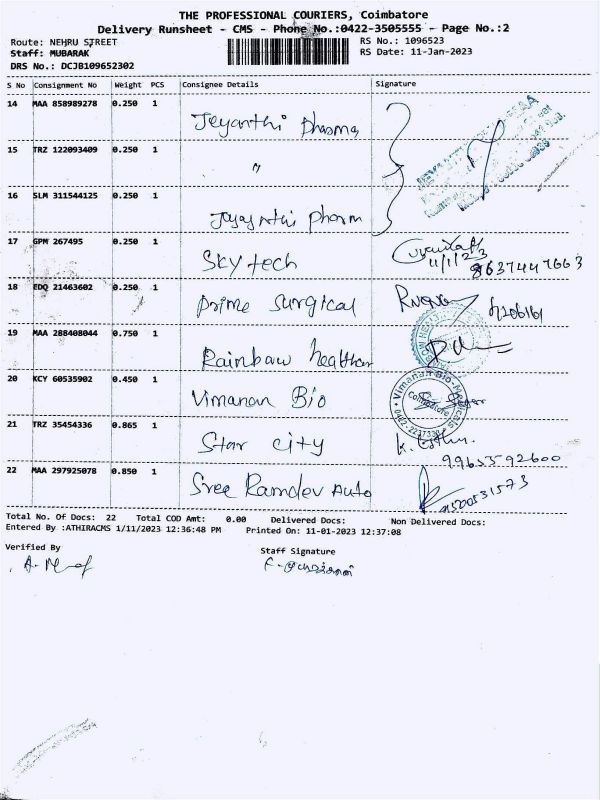 THE PROFESSIONAL COURIERS, Coimbatore
Delivery Runsheet - CMS - Phone No.:0422-3505555 - Page No.:2
Route: NEHRU STREET RS No.: 1096523
Staff: MUBARAK RS Date: 11-Jan-2023
DRS No.: DCJB109652302
S No Consignment No Weight PCS Consignee Details Signature
14 MAA 858989278 0.250 1 Jeyanthi pharma
15 TRZ 122093409 0.250 1 "
16 SLM 311544125 0.250 1 Jeyanthi pharm
17 GPM 267495 0.250 1 Sky tech 11/1/23
8637447663
18 EDQ 21463602 0.250 1 prime surgical
19 MAA 288408044 0.750 1 Rainbaw healthcar
20 KCY 60535902 0.450 1 Vimanan Bio Vimanan Bio-Medicals Coimbatore
21 TRZ 35454336 0.865 1 Star city
9965592600
22 MAA 297925078 0.850 1 Sree Ramdev Auto 9500531573
Total No. Of Docs: 22 Total COD Amt: 0.00 Delivered Docs: Non Delivered Docs:
Entered By :ATHIRACMS 1/11/2023 12:36:48 PM Printed On: 11-01-2023 12:37:08
Verified By
Staff Signature